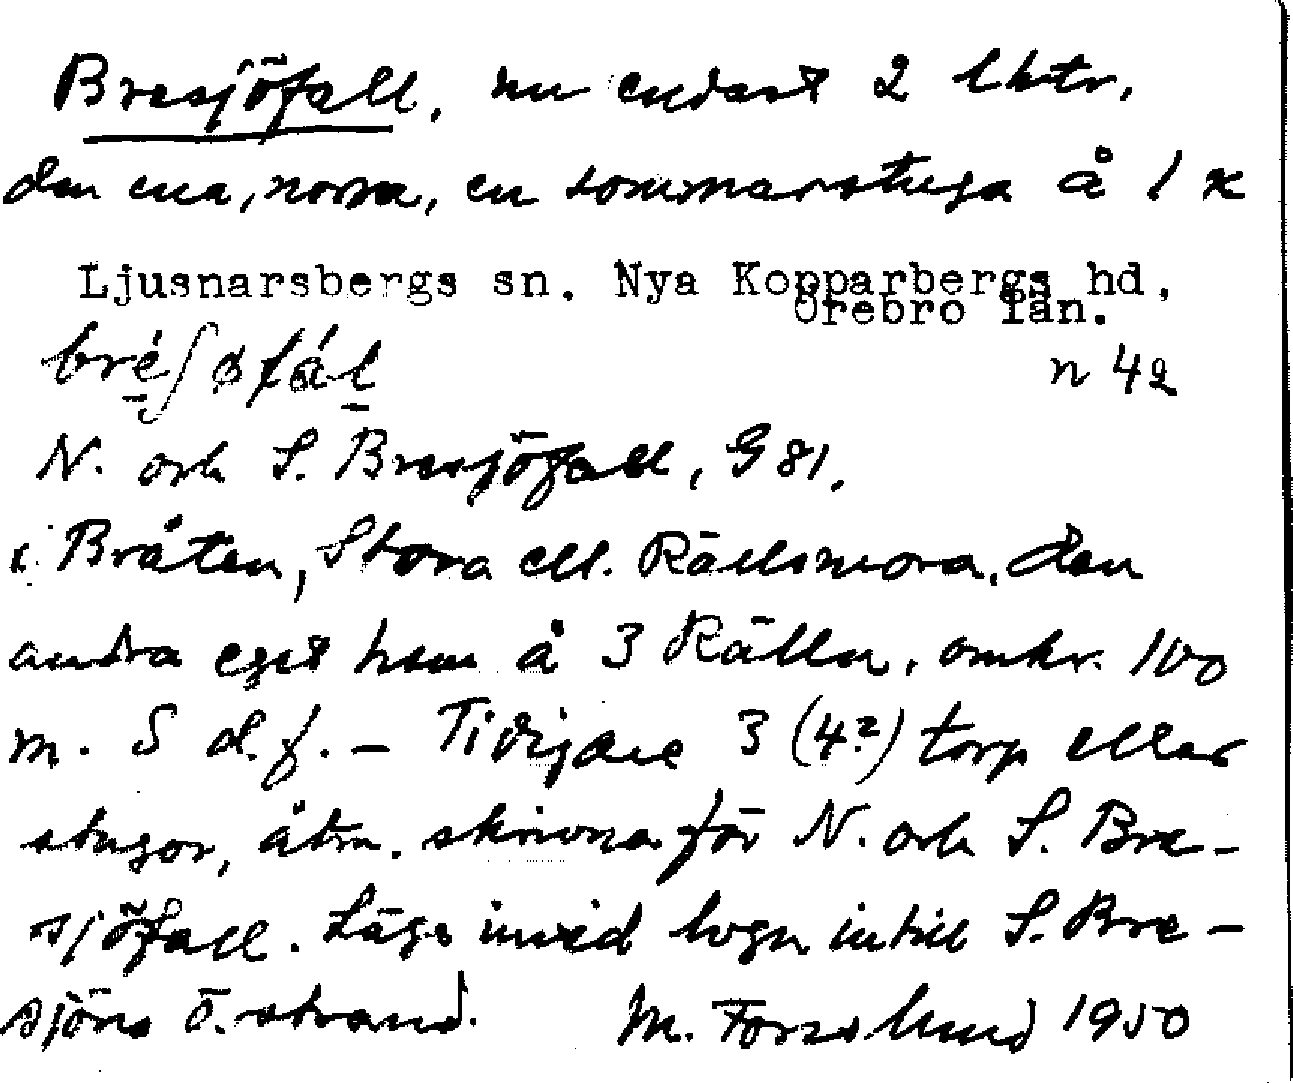 Bresjöfall, nu endast 2 lhtr,
den ena, norra, en sommarstuga å 1 x
Ljusnarsbergs sn. Nya Kopparbergs hd,
Örebro län.
bré̱ʃøfáḻ
n 42
N. och S. Bresjöfall, G 81.
i Bråten, Stora ell. Rällsmora, den
andra eget hem å 3 Rällen, omkr. 100
m. S d.f. – Tidigare 3 (4?) torp eller
stugor, åtm. skrivna för N. och S. Bre-
sjöfall. Läge invid logn intill S. Bre-
sjöns ö. strand. M. Forsslund 1950